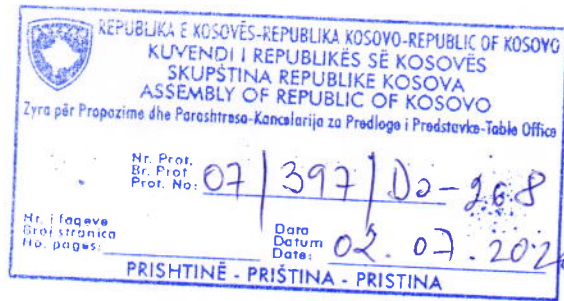 REPUBLIKA E KOSOVËS-REPUBLIKA KOSOVO-REPUBLIC OF KOSOVO
KUVENDI I REPUBLIKËS SË KOSOVËS
SKUPŠTINA REPUBLIKE KOSOVA
ASSEMBLY OF REPUBLIC OF KOSOVO
Zyra për Propozime dhe Parashtresa-Kancelarija za Predloge i Predstavke-Table Office
Nr. Prot.
Br. Prot
Prot. No: 07/397/Do-268
Nr. i faqeve
Broj stranica
No. pages:
Data
Datum
Date: 02. 07. 202
PRISHTINË - PRIŠTINA - PRISTINA